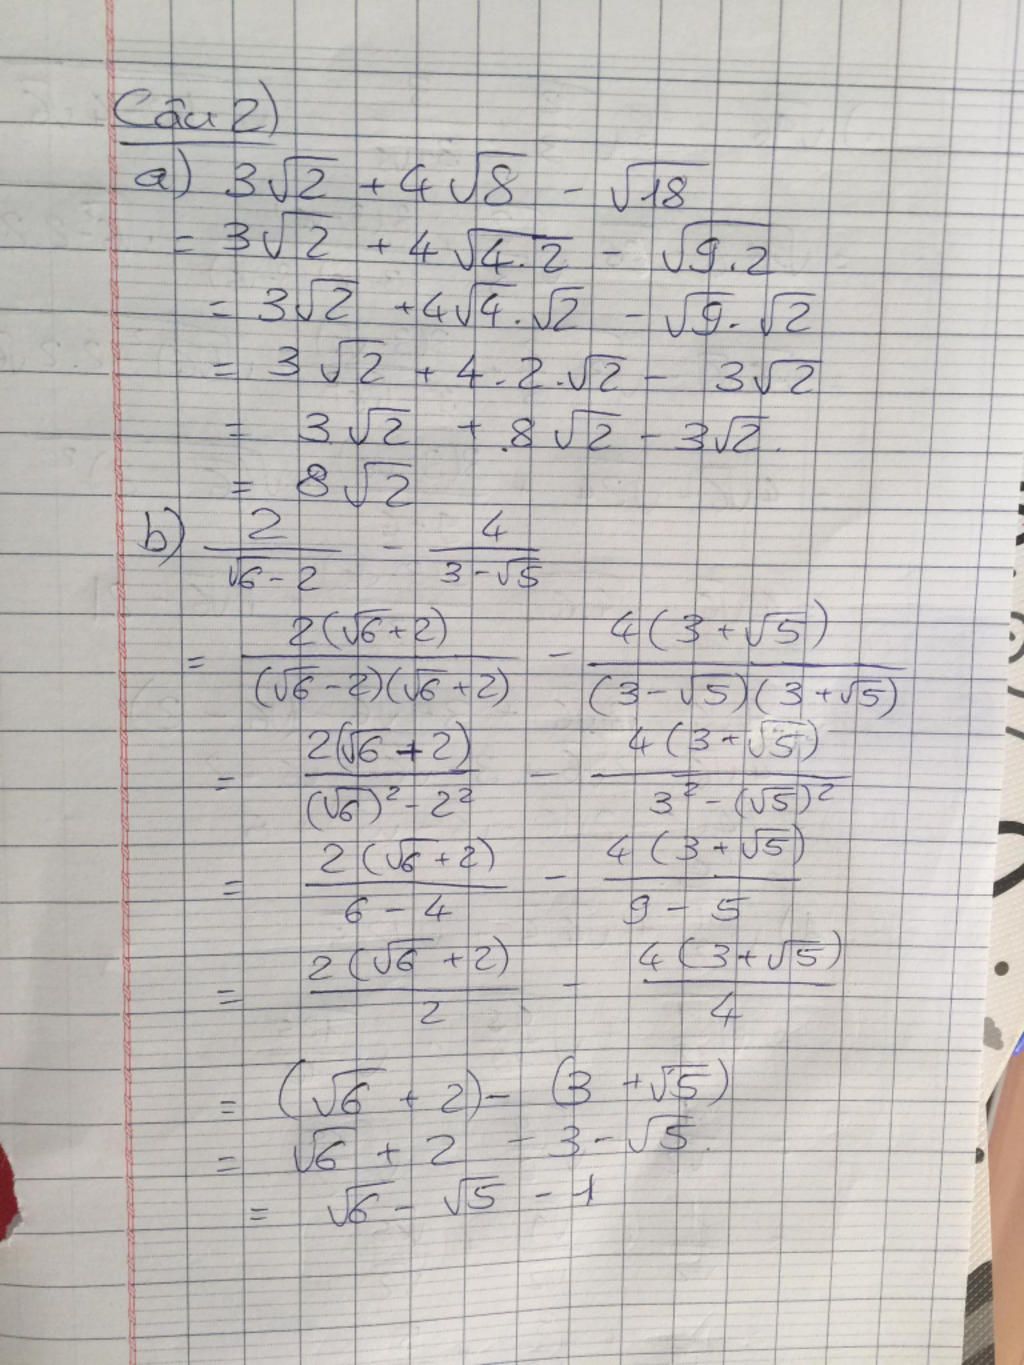 Câu 2)
a) 3√2 + 4√8 - √18
= 3√2 + 4√4.2 - √9.2
= 3√2 + 4√4.√2 - √9.√2
= 3√2 + 4.2.√2 - 3√2
= 3√2 + 8√2 - 3√2.
= 8√2
b) 2/(√6-2) - 4/(3-√5)
= 2(√6+2)/(√6-2)(√6+2) - 4(3+√5)/(3-√5)(3+√5)
= 2(√6+2)/((√6)²-2²) - 4(3+√5)/(3²-(√5)²)
= 2(√6+2)/(6-4) - 4(3+√5)/(9-5)
= 2(√6+2)/2 - 4(3+√5)/4
= (√6+2) - (3+√5)
= √6 + 2 - 3 - √5.
= √6 - √5 - 1